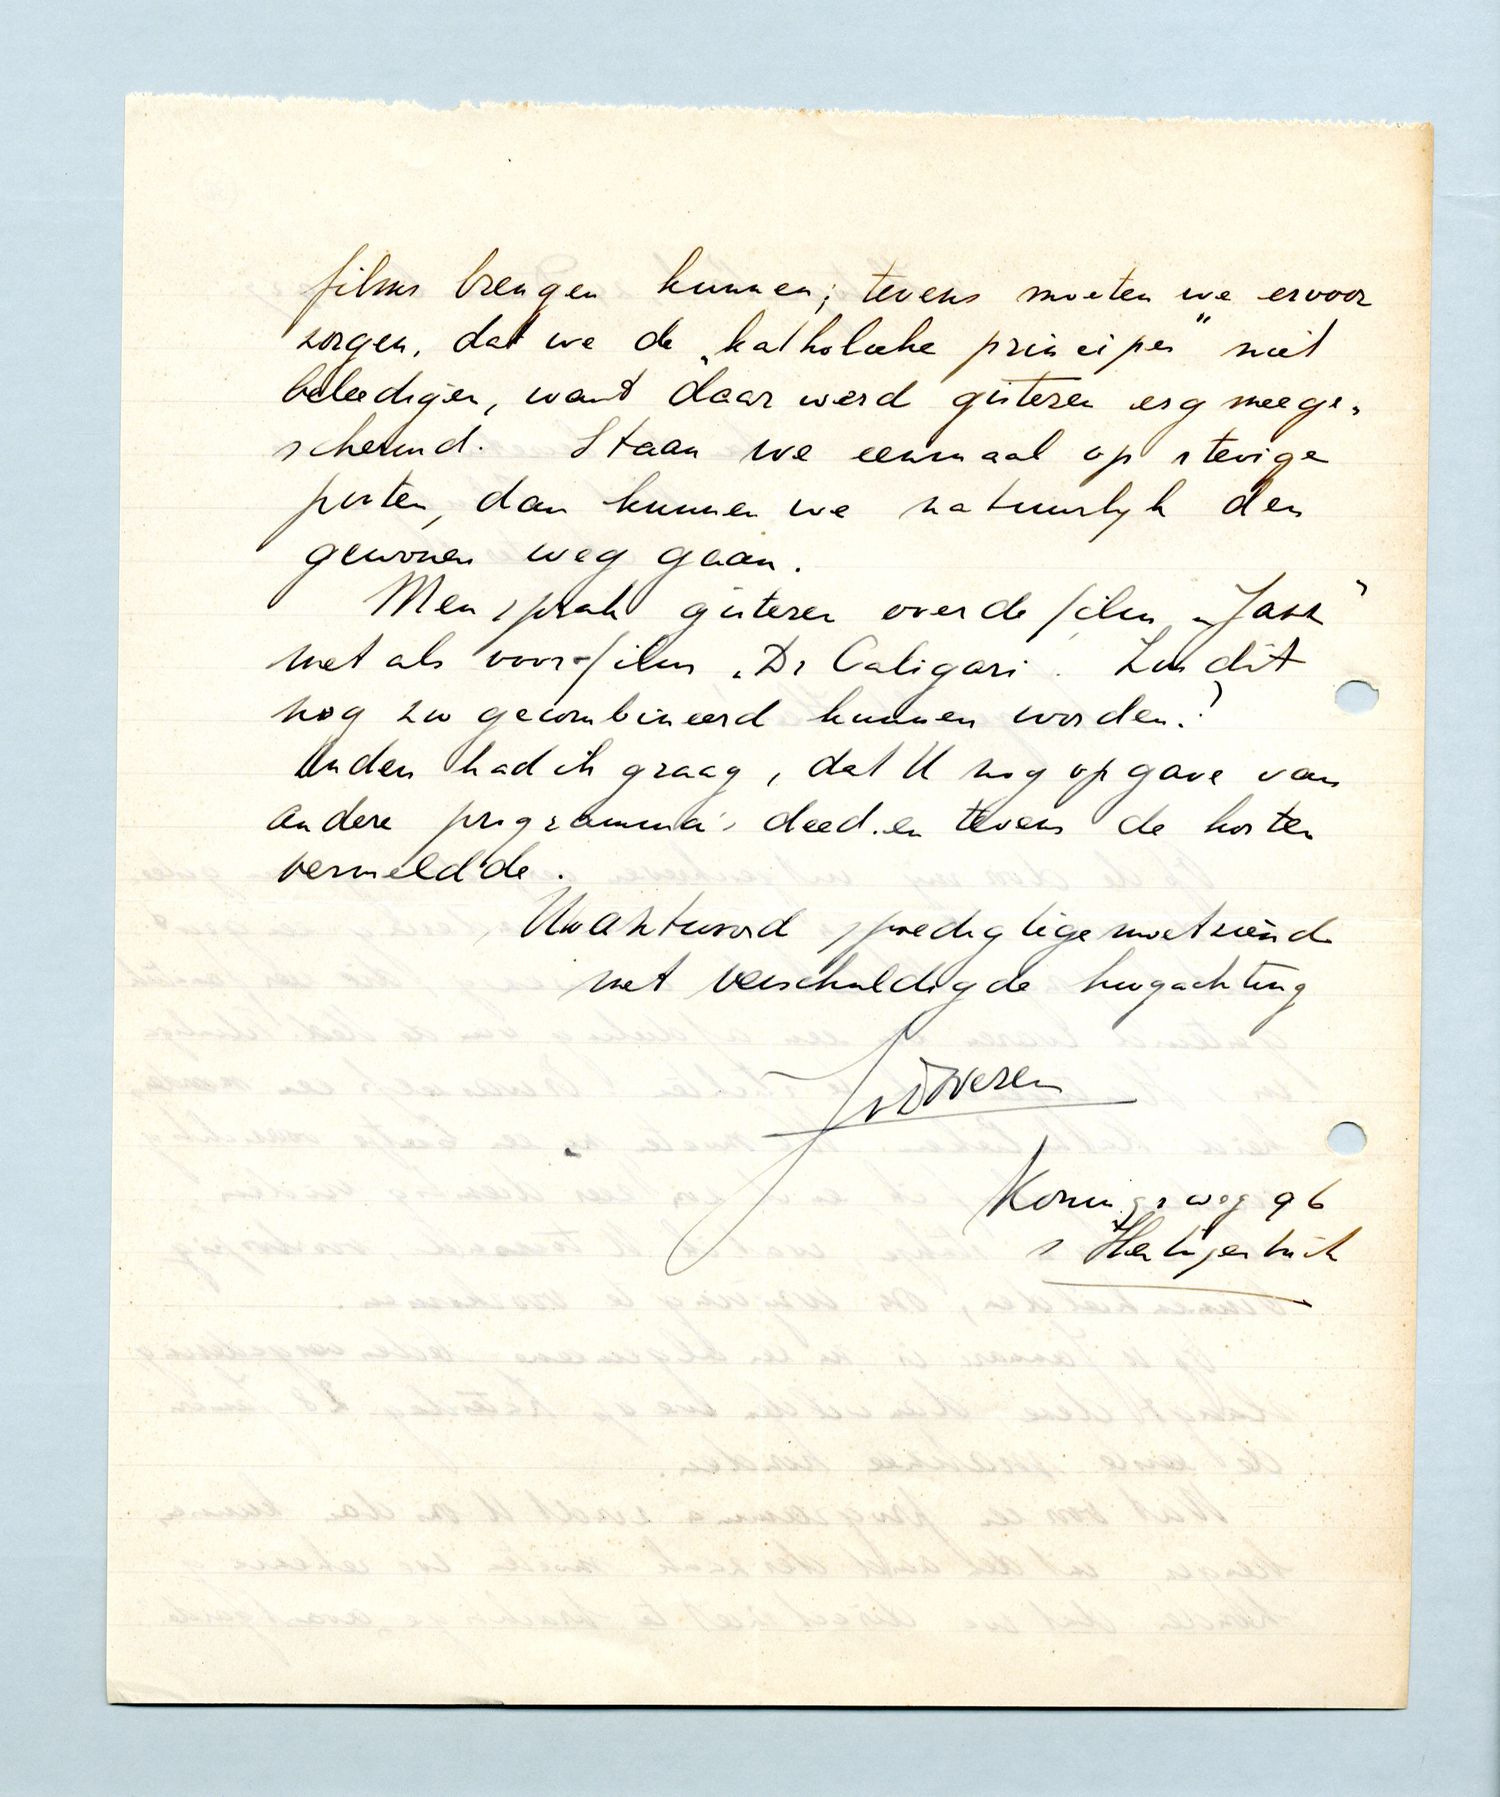 films brengen kunnen; tevens moeten we ervoor
zorgen, dat we de „katholieke principes" niet
beleedigen, want daar werd gisteren erg meege-
schermd. Staan we eenmaal op stevige
pooten, dan kunnen we natuurlijk den
gewonen weg gaan.
Men sprak gisteren over de film „Jazz"
met als voor-film „Dr Caligari. Zou dit
nog zoo gecombineerd kunnen worden?
Anders had ik graag, dat U nog opgave van
andere programma's deed en tevens de kosten
vermeldde.
Uw antwoord spoedig tegemoetziend
met verschuldigde hoogachting
Koningsweg 96
's Hertogenbosch